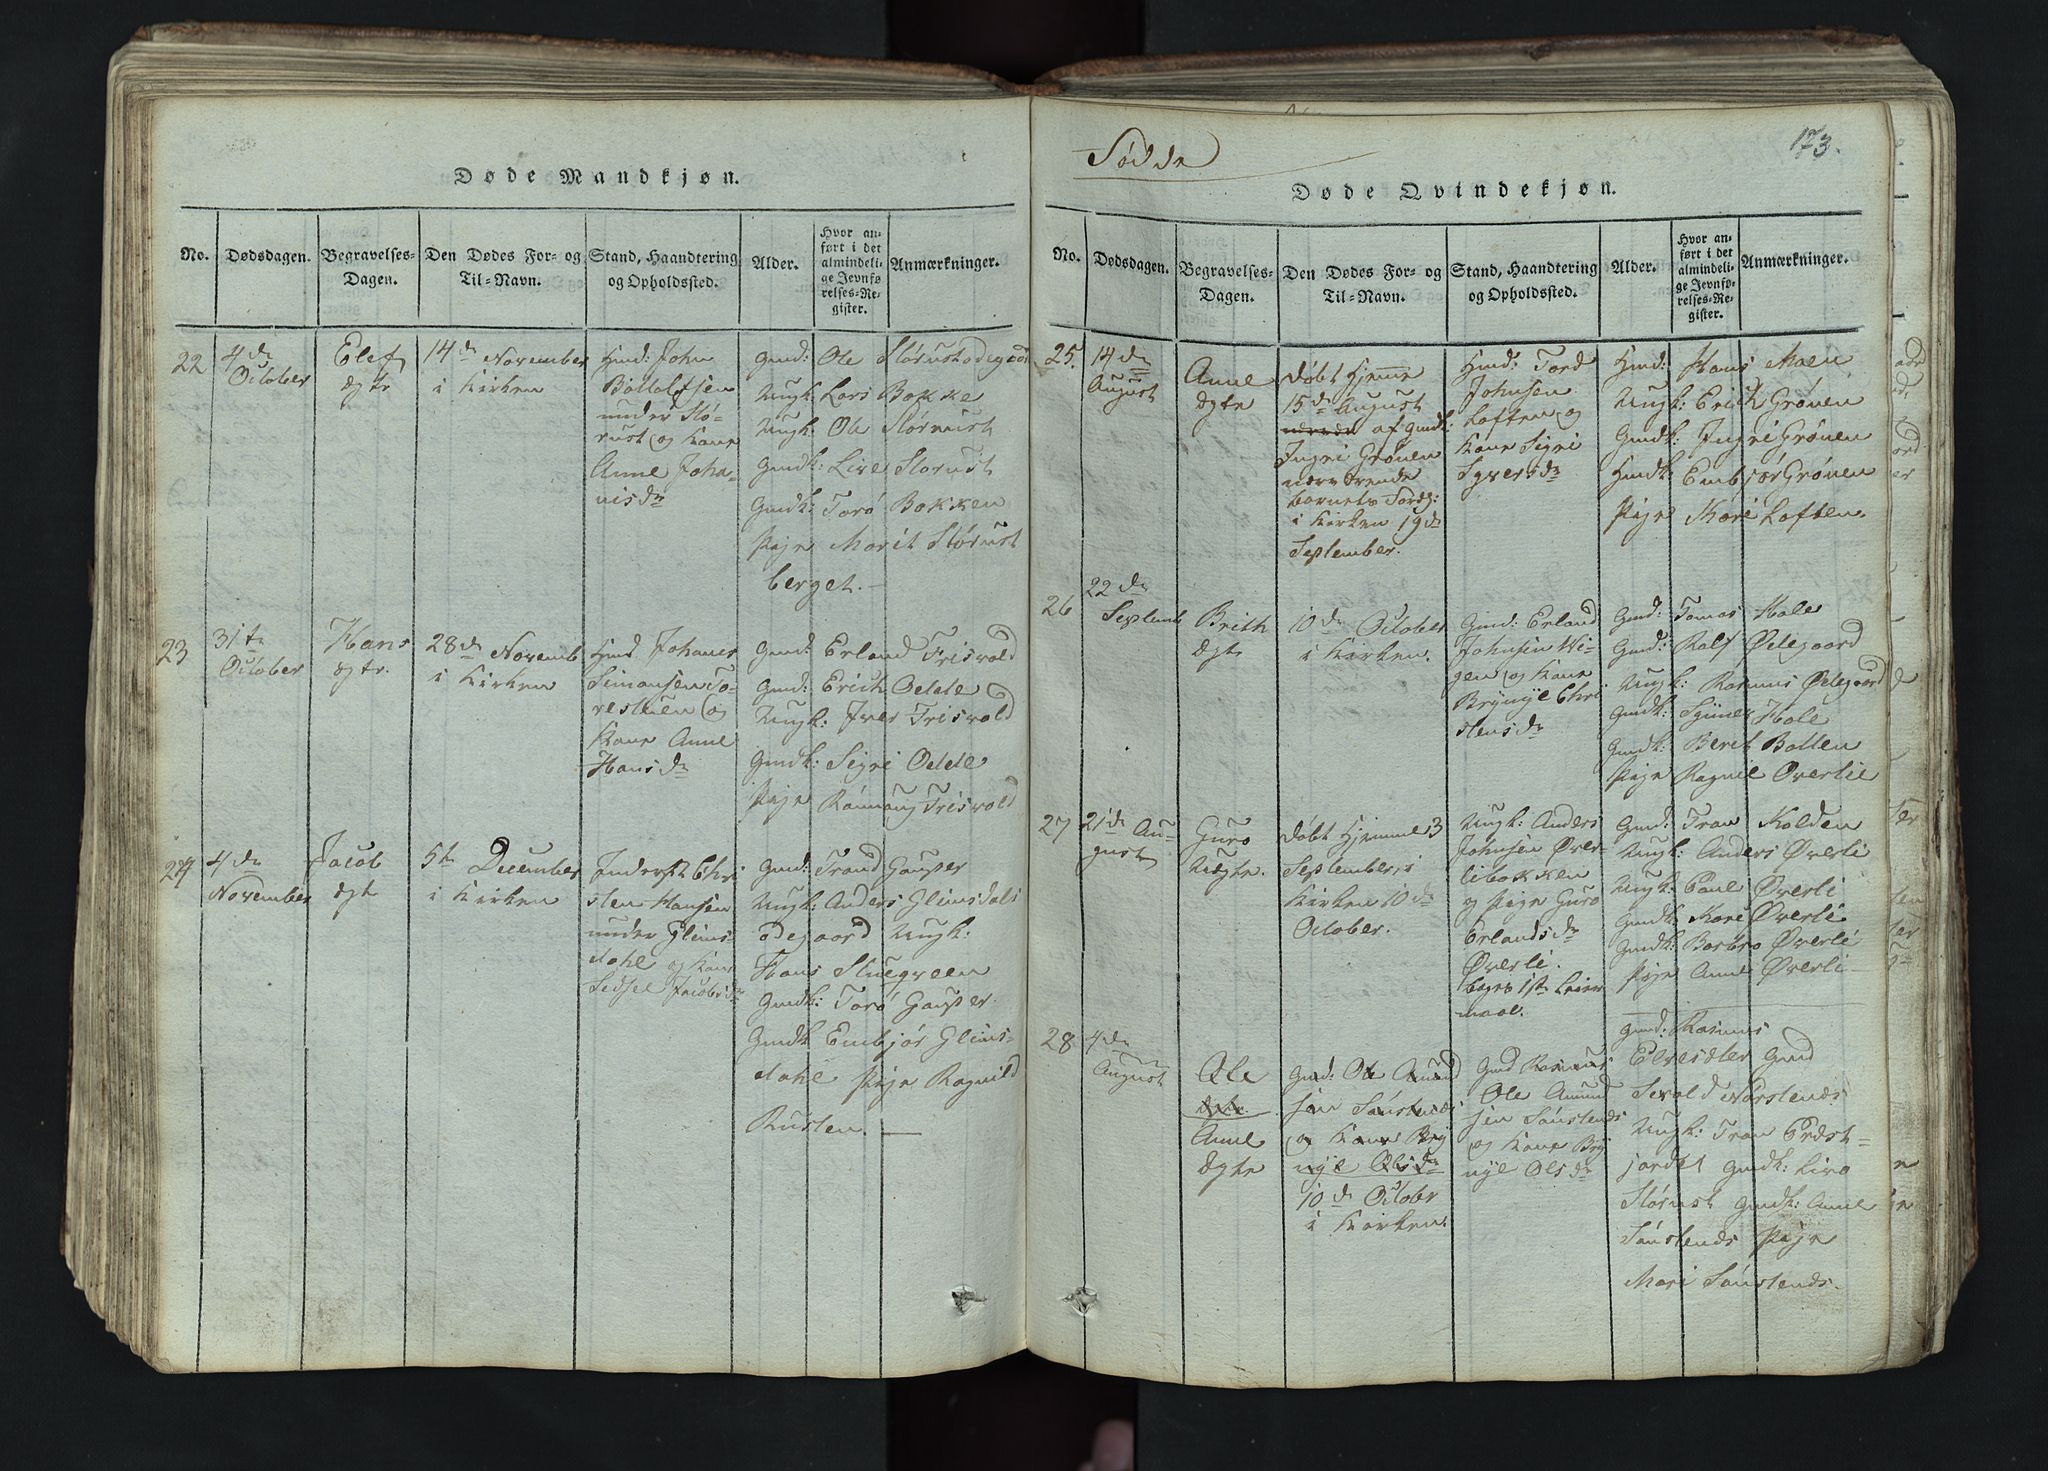 Døde Mandkjøn.
No.
Dødsdagen.
Begravelses-
Dagen.
Den Dødes For- og
Til-Navn.
Stand, Haandtering
og Opholdssted.
Alder.
Hvor an-
ført i det
almindeli-
ge Jevnfø-
relses-Re-
gister.
Anmærkninger.
22
4de
October
Elef
ægte
14de November
i Kirken
hmd: John
under Stø-
rust og Kone
Anne Joha-
nisdr
gmd: Ole Størustødegaard
Ungk: Lars Bakke
Ungk: Ole Størust
gmdk: Live Størust
gmdk: Torø Bakken
Pige Marit Størust
berget.
23
31te
October
Hans
ægte.
28de Novemb
i Kirken
Hmd Johanes
Simonsen To-
restuen og
Kone Anne
Hansdr
gmd: Erland Frisvold
gmd: Erich Odde
Ungk: Iver Frisvold
gmdk: Sigri Odde
Pige Rønnaug Frisvold
24
4de
November
Jacob
ægte
5te December
i Kirken
Inderst Chri
sten Hansen
under Glims-
dahl og Kone
Sedsel Jacobsdr
gmd: Trond Gausper
Ungk: Anders Glimsdals
ødegaard Ungk:
Hans Stuegveen
gmdk: Torø Gausper
gmdk Embjør Glims-
dahl Pige Ragnild
Rusten.
Fødde
173.
Døde Qvindekjøn.
No.
Dødsdagen.
Begravelses-
Dagen.
Den Dødes For- og
Til-Navn.
Stand, Haandtering
og Opholdssted.
Alder.
Hvor an-
ført i det
almindeli-
ge Jevnfø-
relses-Re-
gister.
Anmærkninger.
25.
14de
August
Anne
ægte
døbt hjemme
15de August
af gmdk:
Ingri Grønen
nærværende
barnets Forældr:
i Kirken 19de
September.
Hmd: Tord
Johnsen
Loften og
Kone Sigri
Syversdr
Hmd: Hans Moen
Ungk: Erich Grønen
Gmdk: Ingri Grønen
Hmdk: Embjør Grønen
Pige Kari Loften.
26
22de
Septemb
Brith
Ægte
10de October
i Kirken.
Gmd: Erland
Johnsen Wi-
gen og Kone
Brynyl Chri
stensdr
Gmd: Tomas Hole
Gmd: Rolf Ødegaard
Ungk: Rasmus Ødegaard
Gmdk: Synnev Hole
Gmdk: Berit Botten
Pige Ragnil Øverlie
27
21de Au-
gust
Guro
Uægte.
døbt hjemme 3
September, i
Kirken 10de
October.
Ungk: Anders
Johnsen Øver-
libakken
og Pige Guro
Erlandsdr
Øverli.
beges 1ste Leier
maal.
Gmd: Tron Kolden
Ungk: Anders Øverli
Ungk: Poul Øverli
Gmdk: Kari Øverli
Gmdk: Barbro Øverli
Pige Anne Øverli
28
4de
August
Ole
Anne
Ægte
Gmd: Ole Amund
sen Sønstends
og Kone Bry
nyl Olsdr
10de October
i Kirken.
Gmd Rasmus
Ole Amund
sen Sønstends
og Kone Bry
nyl Olsdr
Gmd: Rasmus
Elvesæter Gmd
Sevald Norstends
Ungk: Tron
jordet Gmdk: Liva
Størust Gmdk: Anne
Sønstends Pige
Mari Sønstends.